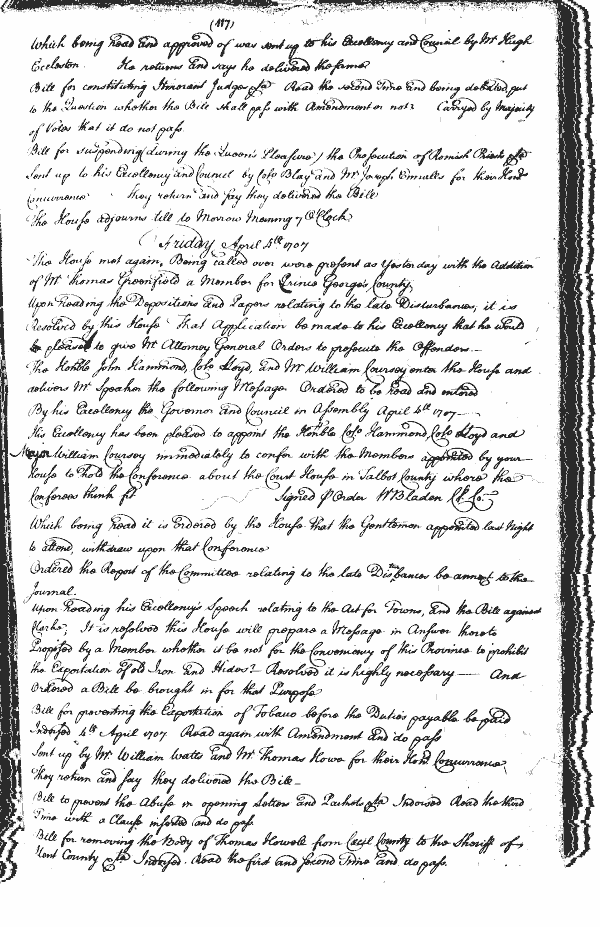 (117)
Which being Read and approved of was sent up to his Excellency and Council by Mr Hugh
Eccleston. He returns and says he delivered the same
Bill for constituting Itinerant Judges &ca Read the second Time and being debated put
to the Question whether the Bill shall pass with Amendment or not? Carryed by Majority
of Votes that it do not pass.
Bill for suspending (during the Queen's Pleasure) the Prosecution of Romish Priests &ca
Sent up to his Excellency and Council by Colo Blay and Mr Joseph Ennalls for their Honrs
Concurrence They return and say they delivered the Bill
The House adjourns till to Morrow Morning 7 O'Clock
Friday April 4th 1707
The House met again, Being called over were present as Yesterday with the Addition
of Mr Thomas Greenfield a Member for Prince George's County,
Upon Reading the Depositions and Papers relating to the late Disturbances, it is
Resolved by this House That Application be made to his Excellency that he would
be pleased to give Mr Attorney General Orders to prosecute the Offenders.
The Honble John Hammond, Colo Lloyd, and Mr William Coursey enter the House and
delivers Mr Speaker the following Message Ordered to be Read and entered
By his Excellency the Governor and Council in Assembly April 4th 1707
His Excellency has been pleased to appoint the Honble Colo Hammond, Colo Lloyd and
Major William Coursey immediately to confer with the Members appointed by your
House to hold the Conference about the Court House in Talbot County where the
Conferees think fit Signed p Order W Bladen Cl. Co.
Which being Read it is Ordered by the House that the Gentlemen appointed last Night
to attend, withdraw upon that Conference
Ordered the Report of the Committee relating to the late Disbances be annext to the
Journal.
Upon Reading his Excellency's Speech relating to the Act for Towns, and the Bill against
Clerks, It is resolved this House will prepare a Message in Answer thereto
Proposed by a Member whether it be not for the Conveniency of this Province to prohibit
the Exportation of old Iron and Hides? Resolved it is highly necessary — And
Ordered a Bill be brought in for that Purpose
Bill for preventing the Exportation of Tobacco before the Duties payable be paid
Indorsed 4th April 1707 Read again with Amendment and do pass
Sent up by Mr William Watts and Mr Thomas Howe for their Honrs Concurrence,
They return and say they delivered the Bill
Bill to prevent the Abuse in opening Letters and Packets &ca Indorsed Read the third
Time with a Clause inserted and do pass.
Bill for removing the Body of Thomas Howell from Cecil County to the Sheriff of
Kent County &ca Indorsed. Read the first and second Time and do pass.